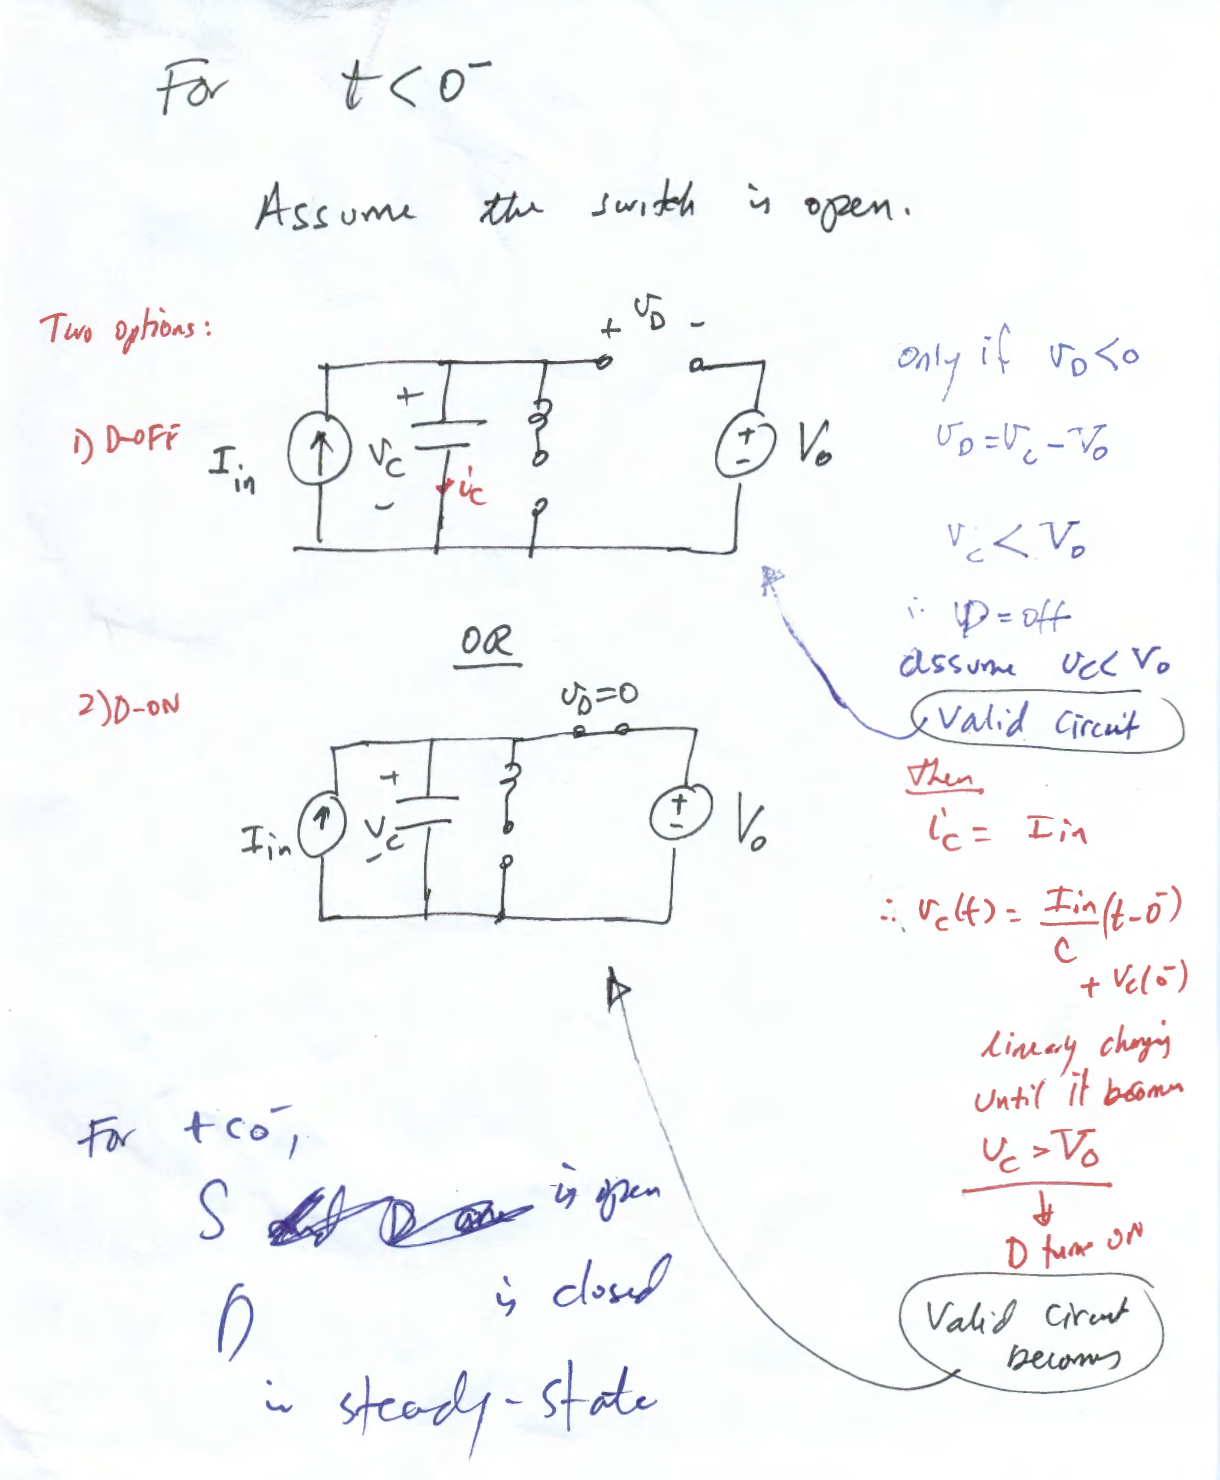 For t < 0⁻
Assume the switch is open.
Two options:
1) D-OFF
+ v_D -
I_in
+
V_C
-
i_C
+
-
V_o
only if v_D < 0
v_D = v_c - V_o
v_c < V_o
∴ D = off
assume v_c < V_o
Valid Circuit
OR
2) D-ON
v_D = 0
I_in
+
V_C
-
+
-
V_o
then
i_C = I in
∴ v_c(t) = Iin/C (t-0⁻)
+ V_c(0⁻)
linearly charging
until it becomes
v_C > V_o
D turns ON
Valid Circuit
becomes
For t < 0⁻,
S is open
D is closed
in steady-state